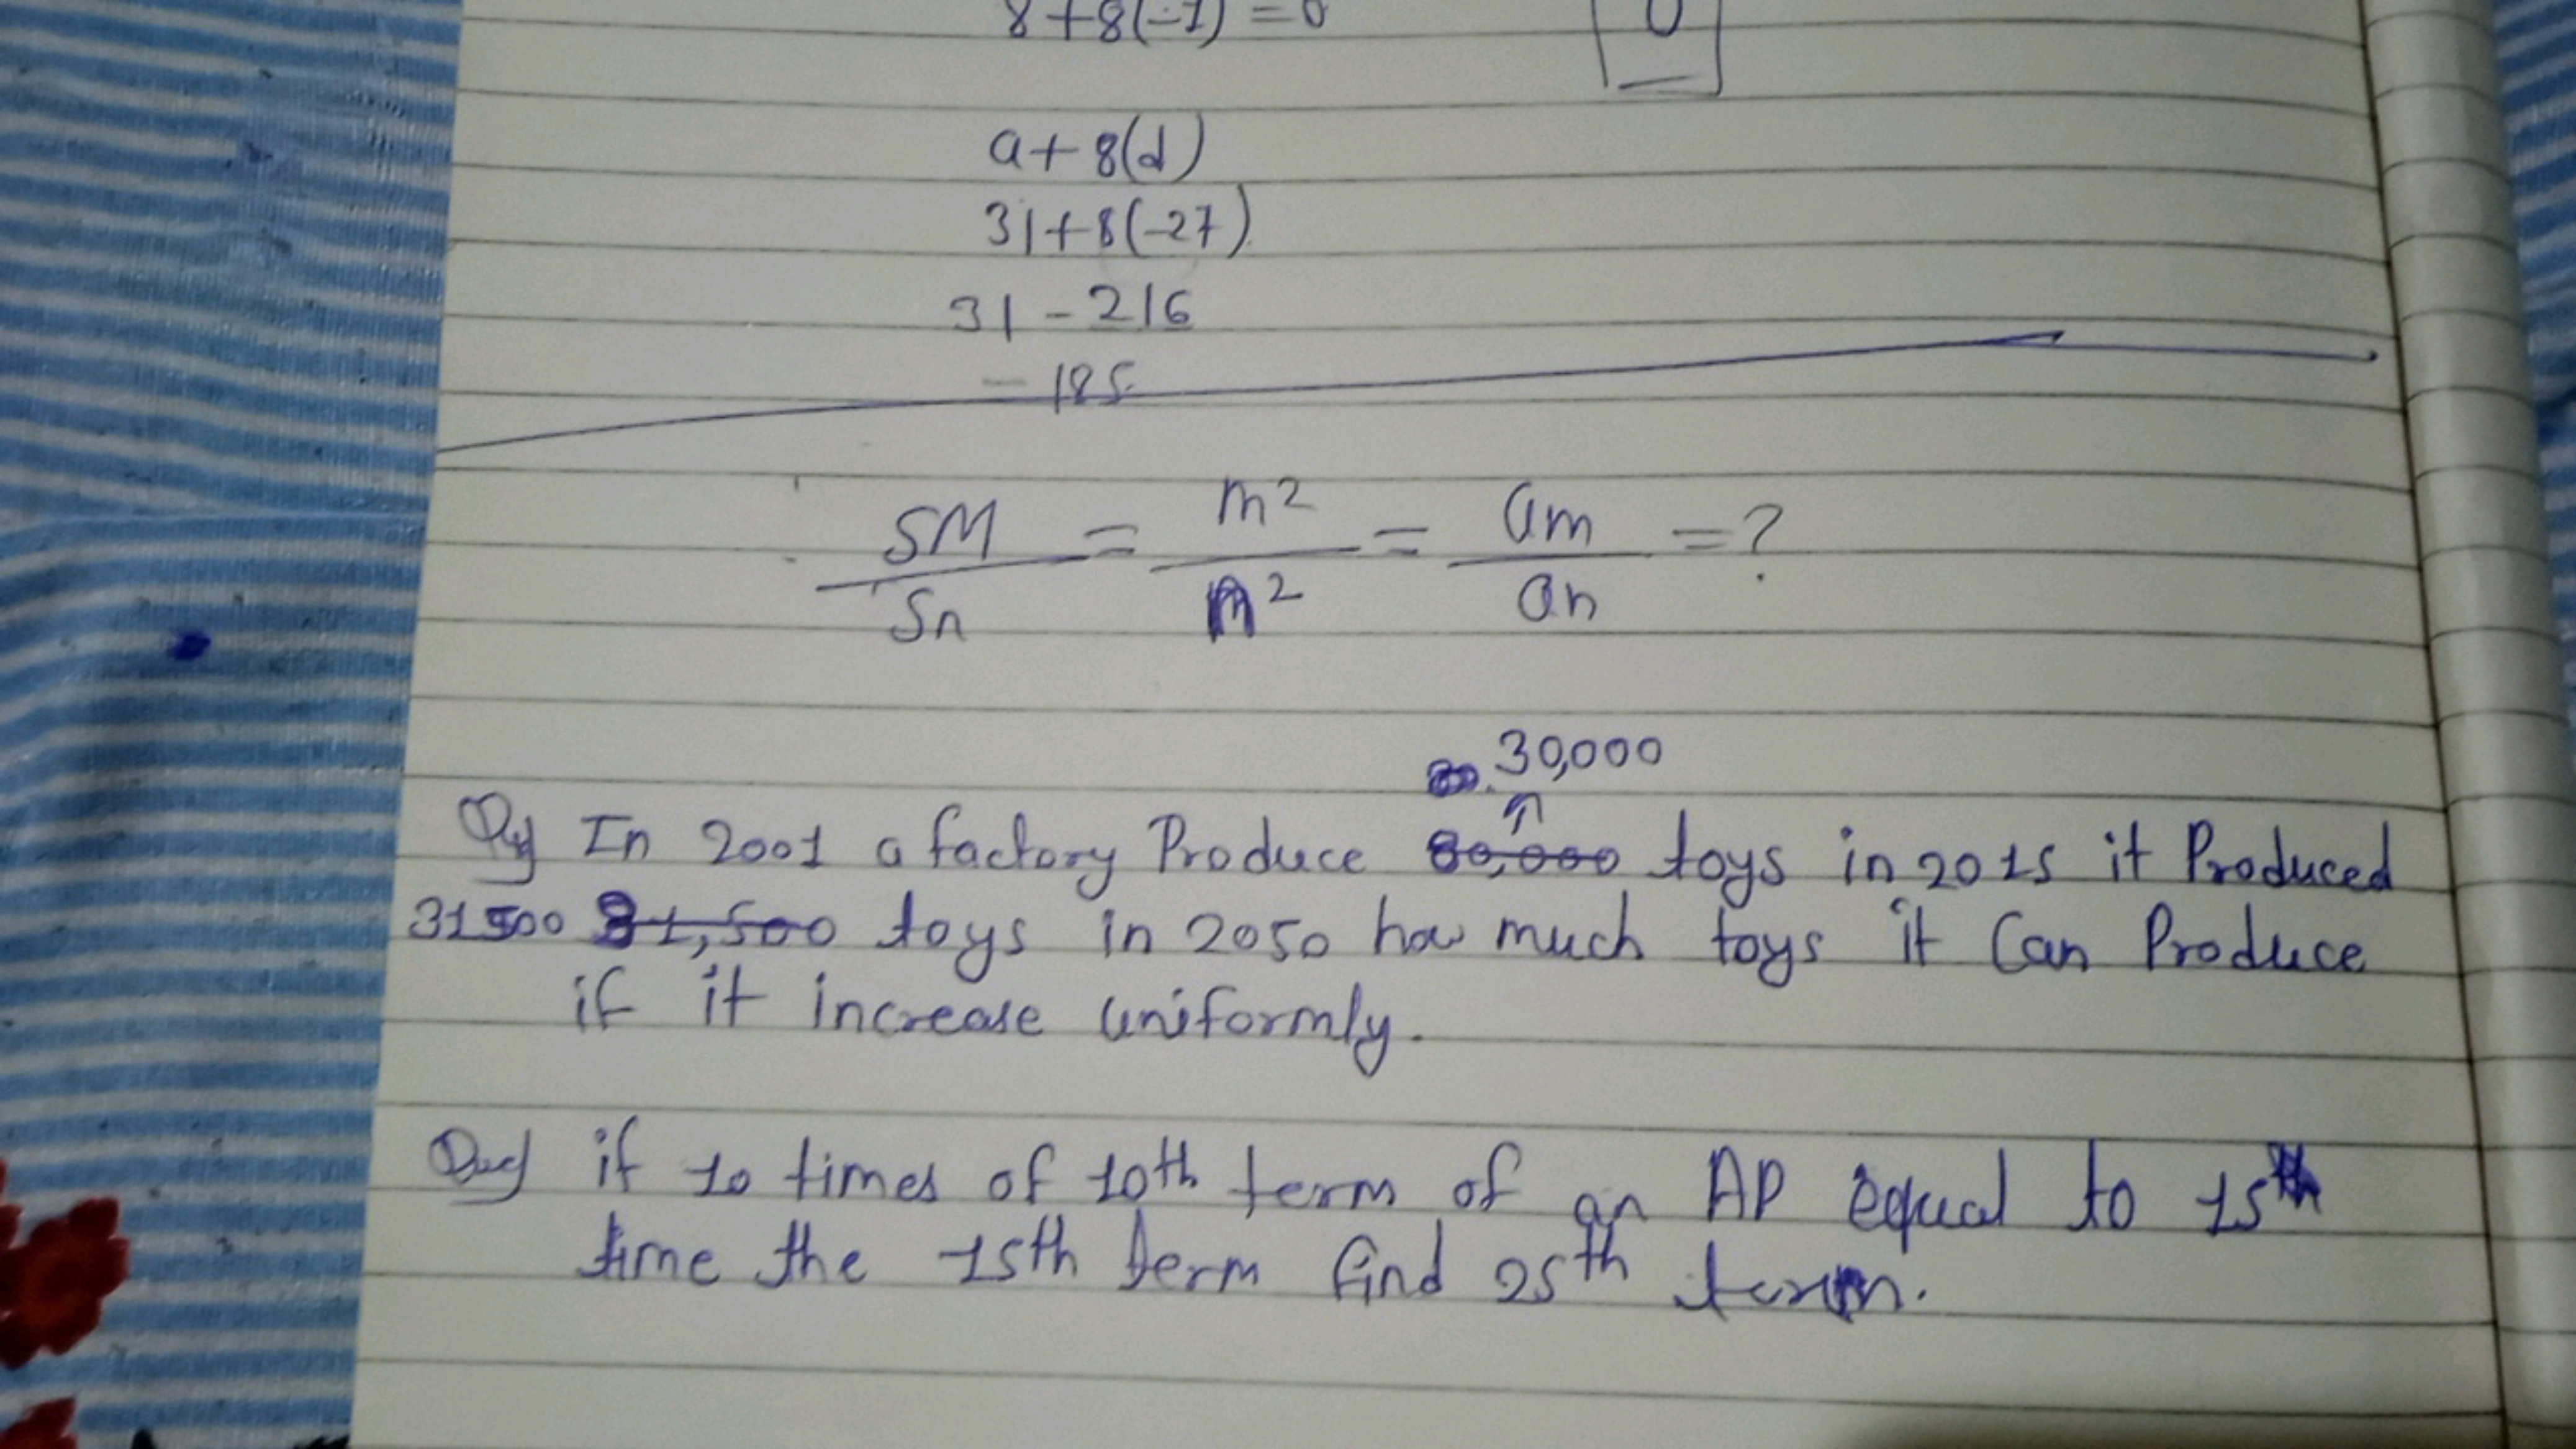 8+8(-1) = 0
0
a+8(d)
31+8(-27)
31-216
-185
SM/Sn = m²/n² = am/an = ?
30,000
In 2001 a factory Produce 80,000 toys in 2015 it Produced
31500 31,500 toys in 2050 how much toys it Can Produce
if it increase uniformly.
if 10 times of 10th term of an AP equal to 15th
time the 15th term find 25th term.